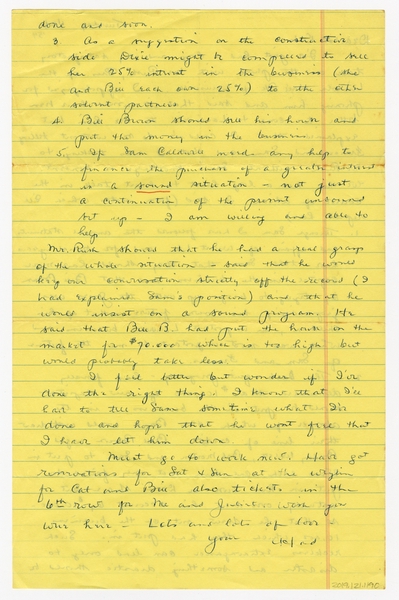 done and soon.
3. As a suggestion on the constructive
side Dixie might be compelled to sell
her 25% interest in the business (she
and Bill each own 25%) to the other
solvent partners
4. Bill Brown should sell his house and
put the money in the business
5. If Sam Caldwell need any help to
finance the purchase of a greater interest
in a sound situation - not just
a continuation of the present unsound
set up - I am willing and able to
help
Mr. Rush showed that he had a real grasp
of the whole situation - said that he would
keep our conversation strictly off the record (I
had explained Sam's position) and that he
would insist on a sound program. He
said that Bill B. had put the house on the
market for $70,000 which is too high but
would probably take less.
I feel better but wonder if I've
done the right thing. I know that I'll
have to tell Sam sometime what I've
done and hope that he wont feel that
I have let him down
Must go to work now. Have got
reservations for Sat & Sun at the
for Cat and Bill also tickets in the
6th row for Me and Juliet. Wish you
were here - Lots and lots of love &
your
2019.121.190